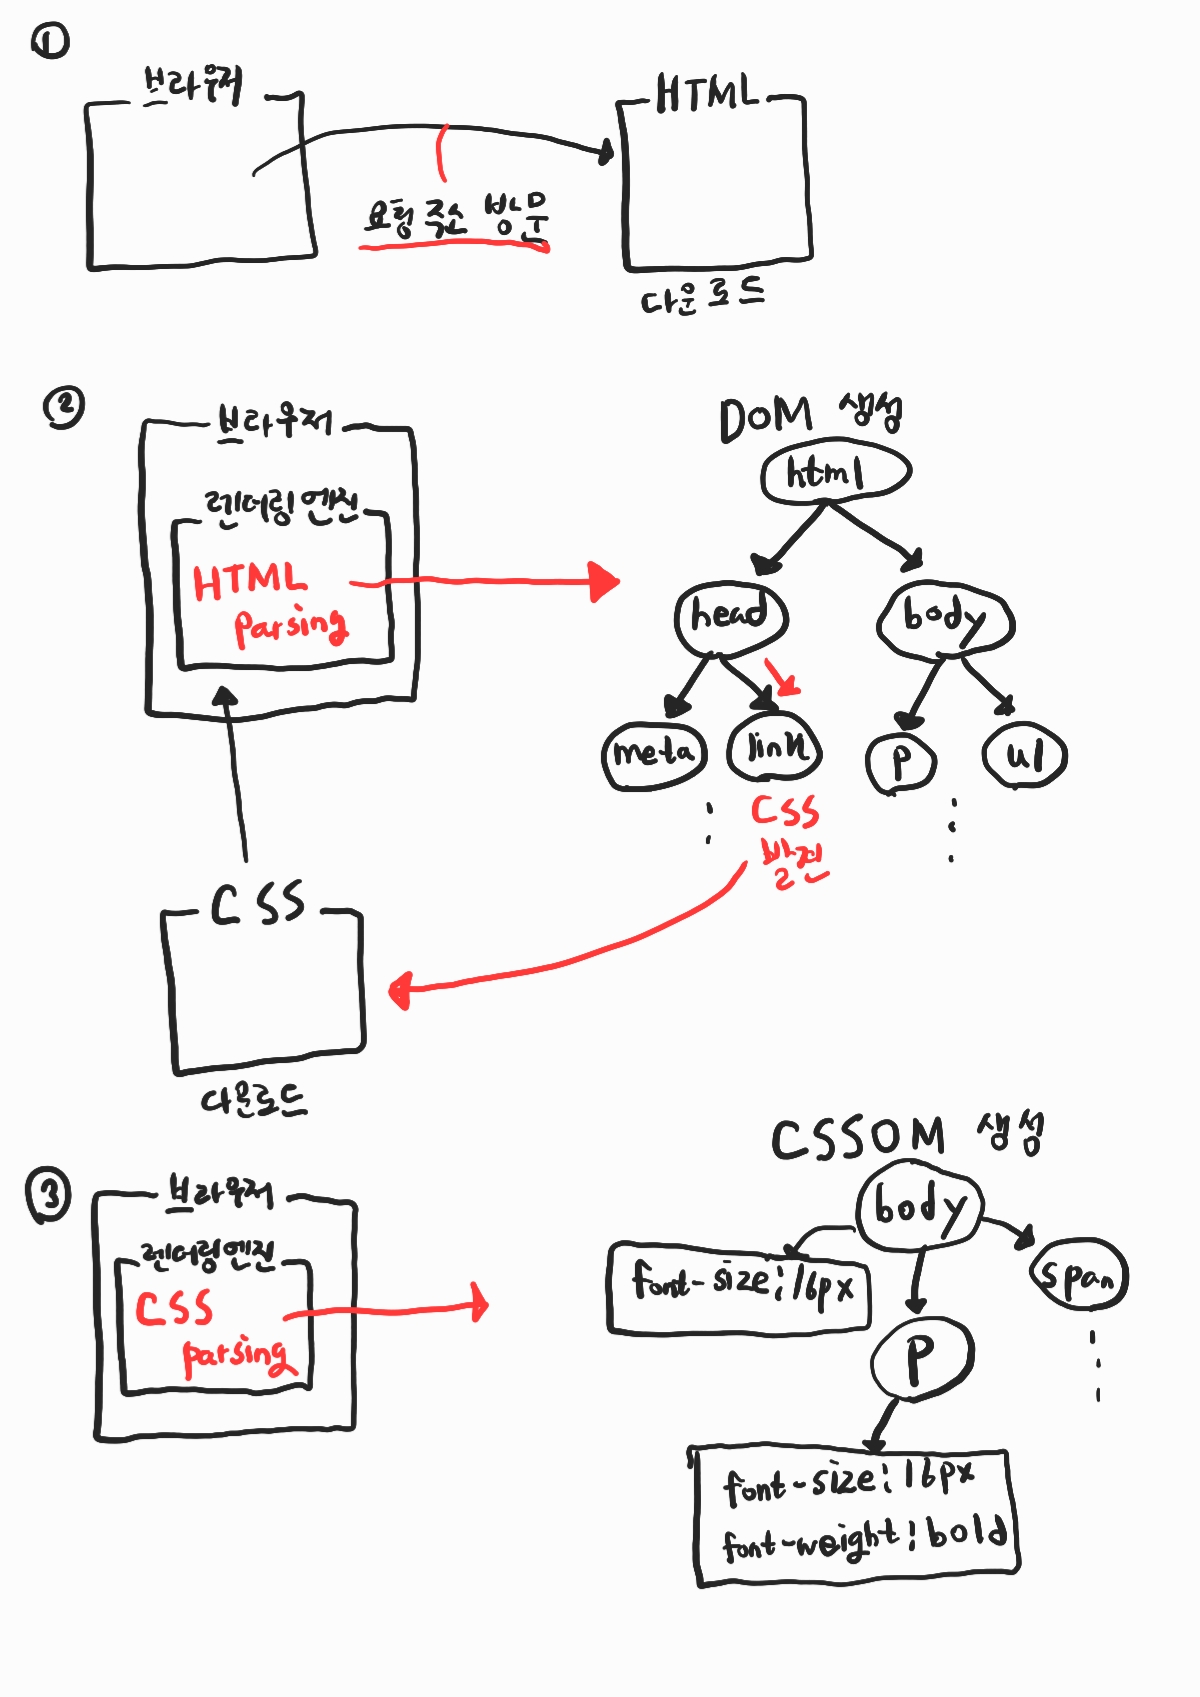 ①
브라우저
HTML
요청 주소 방문
다운로드
②
브라우저
렌더링 엔진
HTML
parsing
DOM 생성
html
head
body
meta
link
p
ul
CSS
발견
CSS
다운로드
③
브라우저
렌더링 엔진
CSS
parsing
CSSOM 생성
body
font-size:16px
span
P
font-size:16px
font-weight:bold